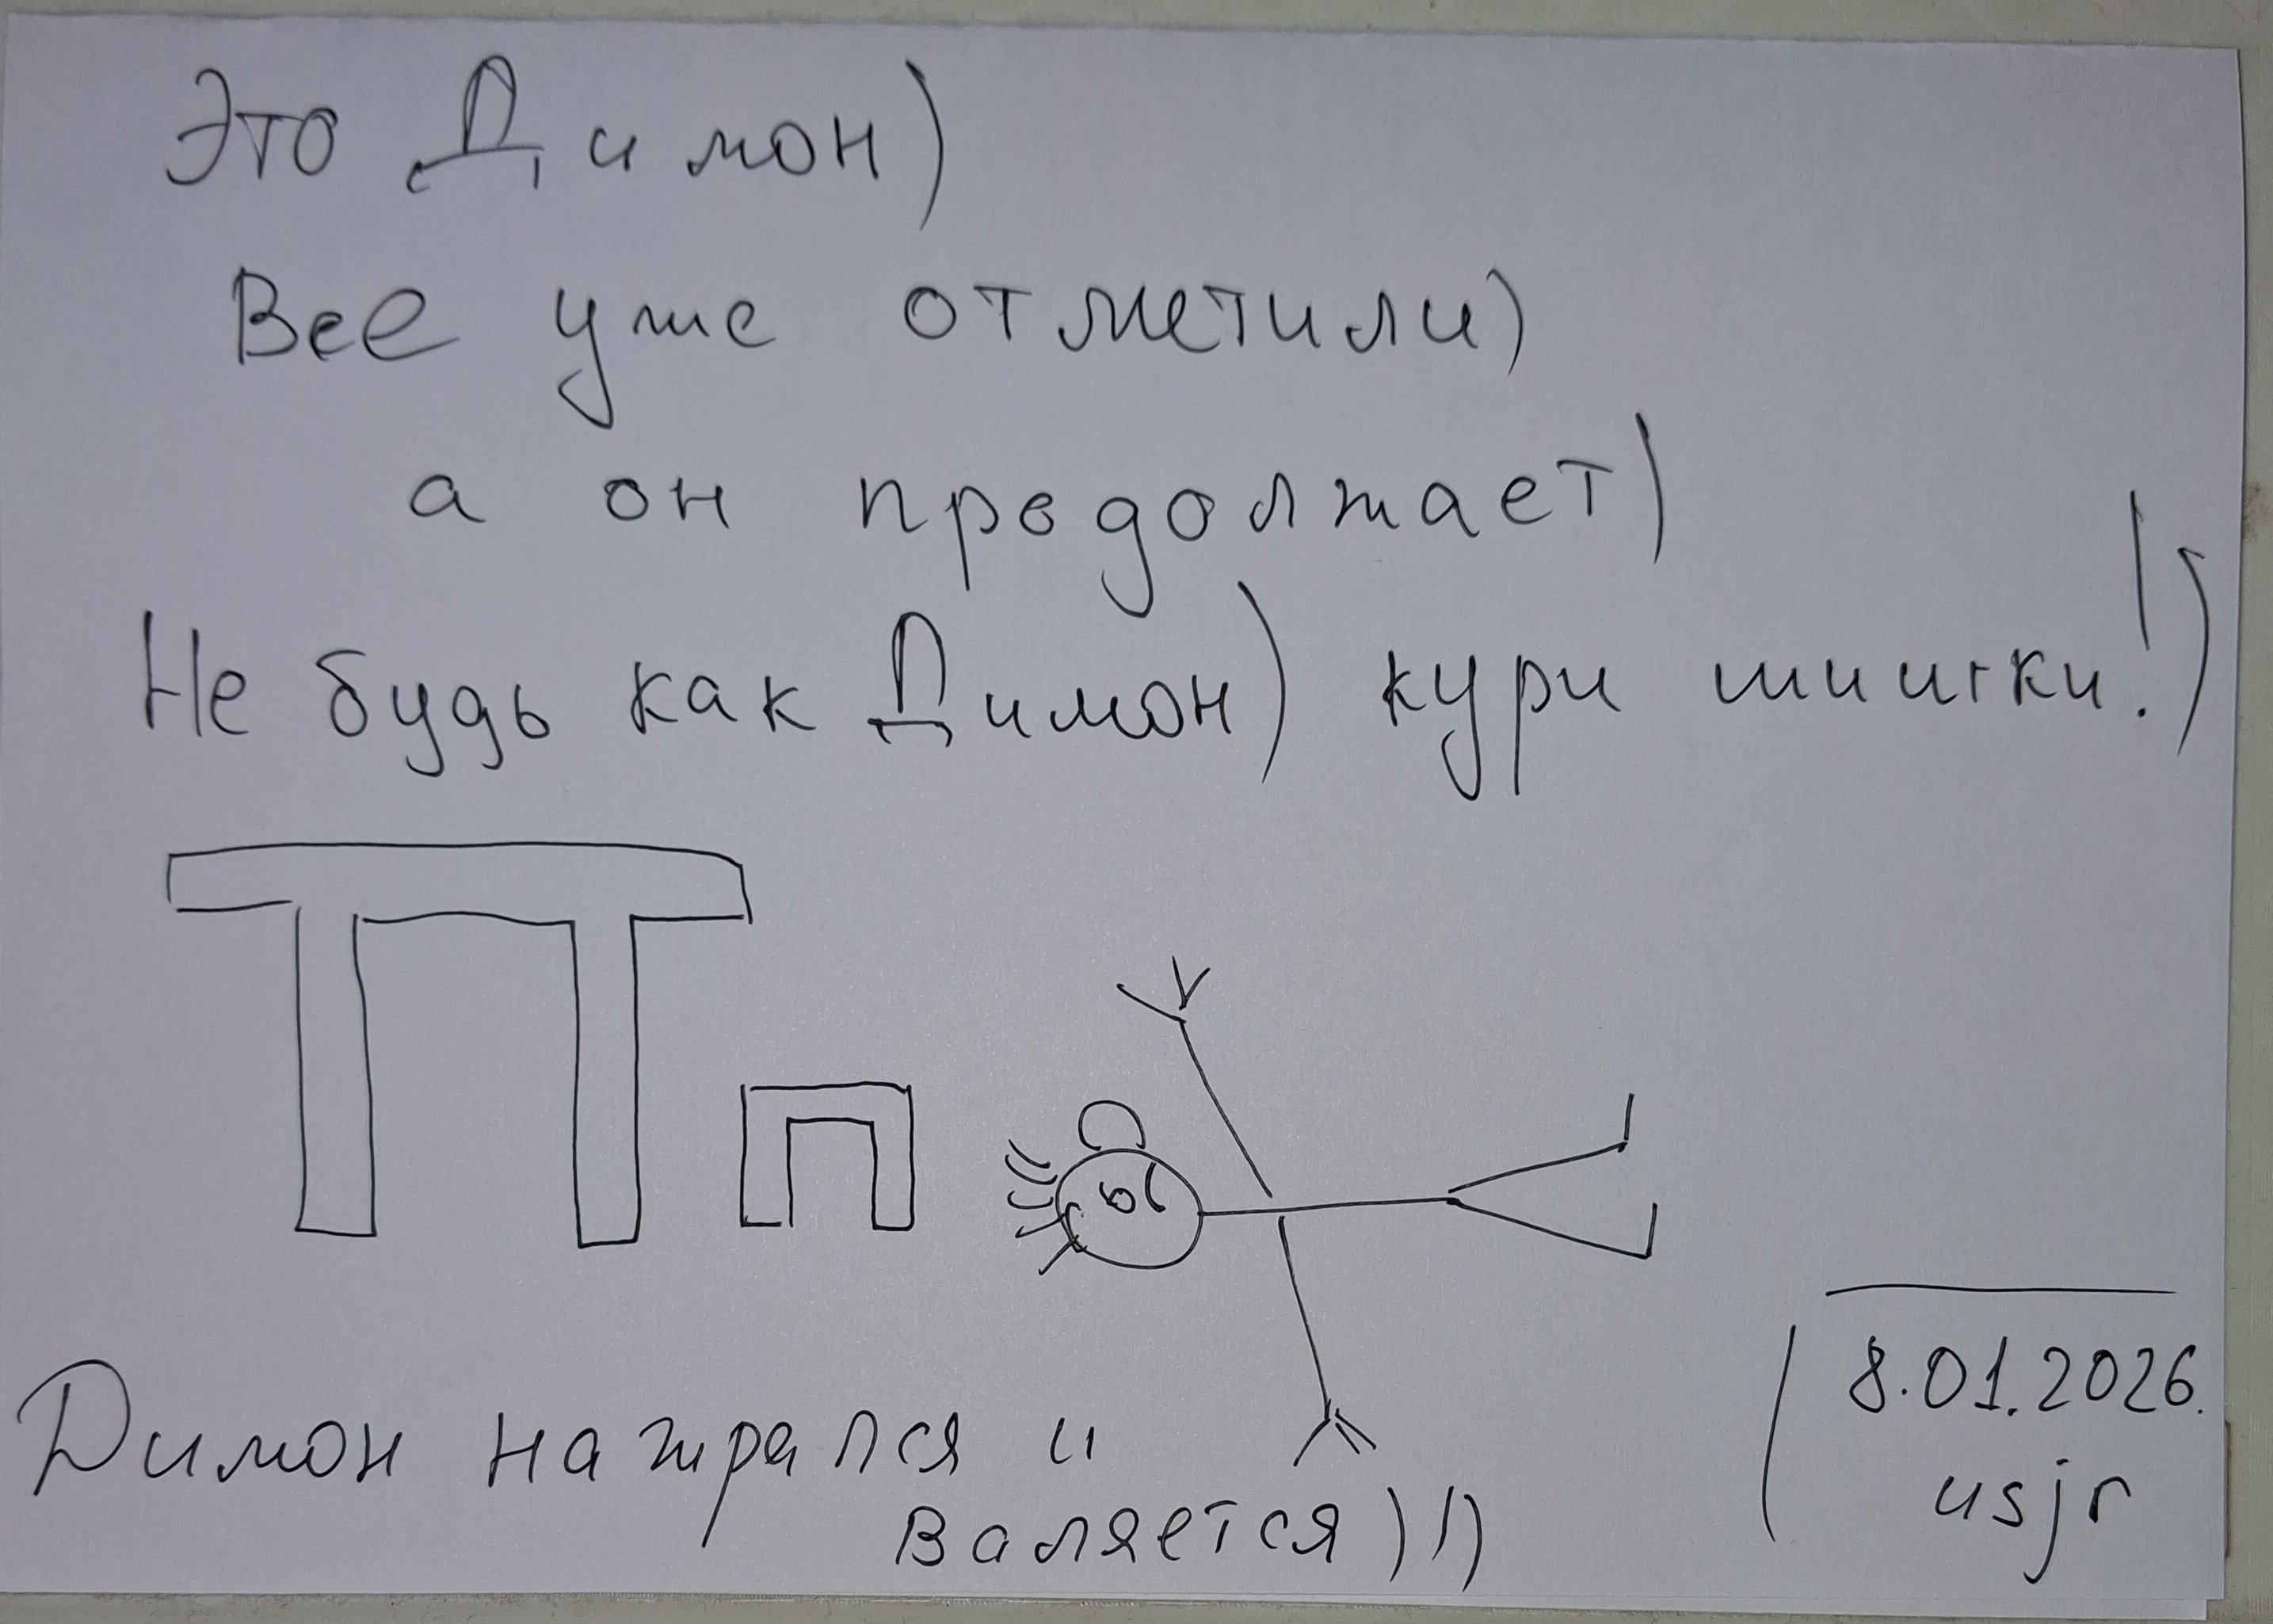 Это Димон)
Все уже отметили)
а он продолжает)
Не будь как Димон) кури шишки!)
Димон нажрался и
валяется)))
8.01.2026.
usjr